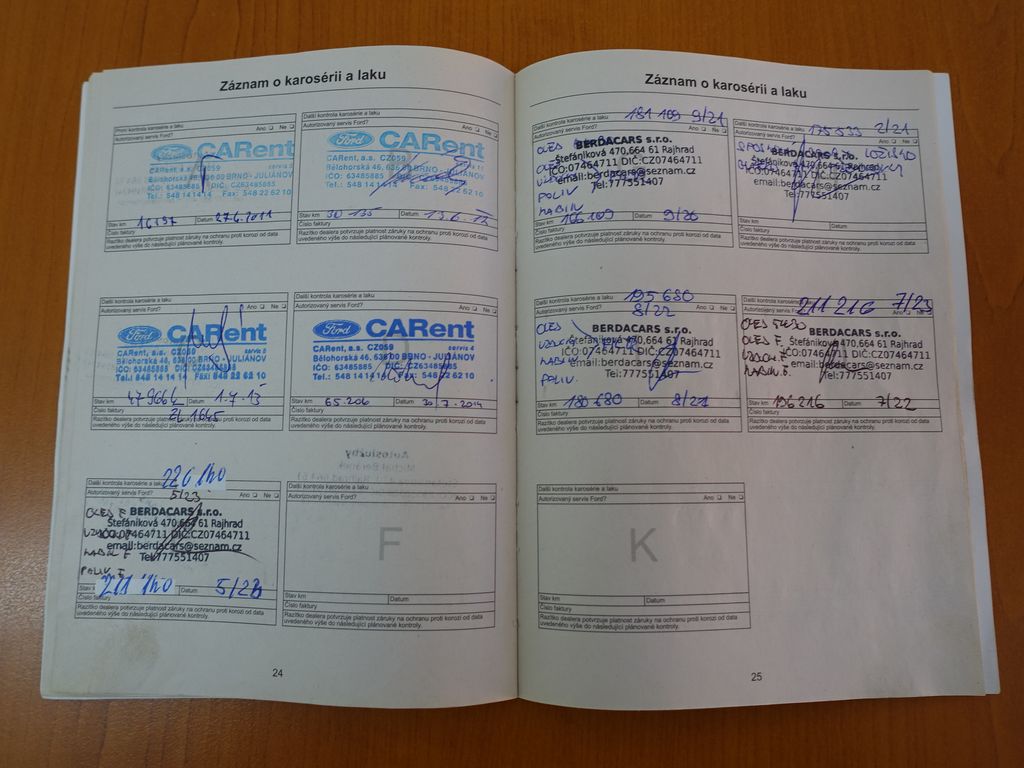 Záznam o karosérii a laku
První kontrola karosérie a laku
Autorizovaný servis Ford? Ano Ne
Ford CARent
CARent, a.s. CZ059
Bělohorská 46, 636 00 BRNO - JULIÁNOV
IČO: 63485885 DIČ: CZ63485885
Tel.: 548 141414 Fax: 548 22 62 10
Stav km 16197 Datum 27.6.2011
Číslo faktury
Razítko dealera potvrzuje platnost záruky na ochranu proti korozi od data
uvedeného výše do následující plánované kontroly.
Další kontrola karosérie a laku
Autorizovaný servis Ford? Ano Ne
Ford CARent
CARent, a.s. CZ059
Bělohorská 46, 636 00 BRNO - JULIÁNOV
IČO: 63485885 DIČ: CZ63485885
Tel.: 548 141414 Fax: 548 22 62 10
Stav km 30 135 Datum 13.6.12
Číslo faktury
Razítko dealera potvrzuje platnost záruky na ochranu proti korozi od data
uvedeného výše do následující plánované kontroly.
Další kontrola karosérie a laku
Autorizovaný servis Ford? Ano Ne
Ford CARent
CARent, a.s. CZ059 servis 5
Bělohorská 46, 636 00 BRNO - JULIÁNOV
IČO: 63485885 DIČ: CZ63485885
Tel.: 548 14 14 14 Fax: 548 22 62 10
Stav km 47966 Datum 1.7.13
Číslo faktury 261645
Razítko dealera potvrzuje platnost záruky na ochranu proti korozi od data
uvedeného výše do následující plánované kontroly.
Další kontrola karosérie a laku
Autorizovaný servis Ford? Ano Ne
Ford CARent
CARent, a.s. CZ059 servis 4
Bělohorská 46, 636 00 BRNO - JULIÁNOV
IČO: 63485885 DIČ: CZ63485885
Tel.: 548 14 14 14 Fax: 548 22 62 10
Stav km 65.206 Datum 30.7.2014
Číslo faktury
Razítko dealera potvrzuje platnost záruky na ochranu proti korozi od data
uvedeného výše do následující plánované kontroly.
Další kontrola karosérie a laku 226 140
Autorizovaný servis Ford? 5/23 Ano Ne
OLES F
BERDACARS s.r.o.
Štefánikova 470,664 61 Rajhrad
IČO:07464711 DIČ:CZ07464711
email:berdacars@seznam.cz
Tel:777551407
KABIN F
PALIV F
Stav km 211 140 Datum
Číslo faktury
Razítko dealera potvrzuje platnost záruky na ochranu proti korozi od data
uvedeného výše do následující plánované kontroly.
Další kontrola karosérie a laku
Autorizovaný servis Ford? Ano Ne
F
Stav km Datum
Číslo faktury
Razítko dealera potvrzuje platnost záruky na ochranu proti korozi od data
uvedeného výše do následující plánované kontroly.
24
Záznam o karosérii a laku
Další kontrola karosérie a laku 181 109 9/21
Autorizovaný servis Ford? Ano Ne
BERDACARS s.r.o.
Štefánikova 470,664 61 Rajhrad
IČO:07464711 DIČ:CZ07464711
email:berdacars@seznam.cz
Tel:777551407
PALIV
KABIN
Stav km 166 109 Datum 9/20
Číslo faktury
Razítko dealera potvrzuje platnost záruky na ochranu proti korozi od data
uvedeného výše do následující plánované kontroly.
Další kontrola karosérie a laku 175 533 2/21
Autorizovaný servis Ford? Ano Ne
LOŽISKO
BERDACARS s.r.o.
Štefánikova 470,664 61 Rajhrad
IČO:07464711 DIČ:CZ07464711
email:berdacars@seznam.cz
Tel:777551407
Stav km Datum
Číslo faktury
Razítko dealera potvrzuje platnost záruky na ochranu proti korozi od data
uvedeného výše do následující plánované kontroly.
Další kontrola karosérie a laku 195 680
Autorizovaný servis Ford? 8/22 Ano Ne
OLES
BERDACARS s.r.o.
Štefánikova 470,664 61 Rajhrad
IČO:07464711 DIČ:CZ07464711
email:berdacars@seznam.cz
Tel:777551407
KABIN
PALIV.
Stav km 180 680 Datum 8/21
Číslo faktury
Razítko dealera potvrzuje platnost záruky na ochranu proti korozi od data
uvedeného výše do následující plánované kontroly.
Další kontrola karosérie a laku 211 216 7/23
Autorizovaný servis Ford? Ano Ne
OLES 5W30
OLES F.
BERDACARS s.r.o.
Štefánikova 470,664 61 Rajhrad
IČO:07464711 DIČ:CZ07464711
email:berdacars@seznam.cz
Tel:777551407
VZDUCH F.
KABIN F.
Stav km 196 216 Datum 7/22
Číslo faktury
Razítko dealera potvrzuje platnost záruky na ochranu proti korozi od data
uvedeného výše do následující plánované kontroly.
Další kontrola karosérie a laku
Autorizovaný servis Ford? Ano Ne
K
Stav km Datum
Číslo faktury
Razítko dealera potvrzuje platnost záruky na ochranu proti korozi od data
uvedeného výše do následující plánované kontroly.
25